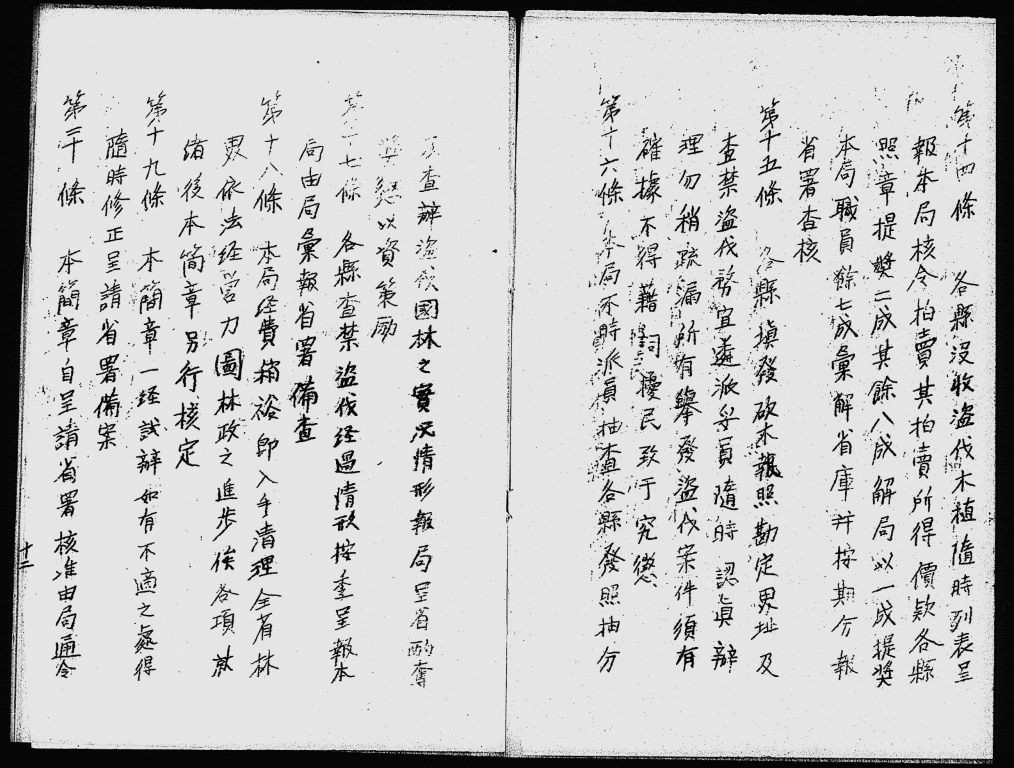 第十四條　各縣沒收盜伐木植隨時列表呈
報本局核令拍賣其拍賣所得價款各縣
照章提獎二成其餘八成解局以一成提獎
本局職員餘七成彙解省庫并按期分報
省署查核
第十五條　各縣填發砍木報照勘定界址及
查禁盜伐務宜遴派妥員隨時認真辦
理勿稍疏漏所有舉發盜伐案件須有
確據不得藉詞擾民致于究懲
第十六條　本局不時派員抽查各縣發照抽分
及查辦盜伐國林之實況情形報局呈省酌奪
獎懲以資策勵
第十七條　各縣查禁盜伐經過情形按季呈報本
局由局彙報省署備查
第十八條　本局经費稍裕即入手清理全省林
界依法经营力圖林政之進步俟各項就
绪後本簡章另行核定
第十九條　本簡章一经試辦如有不適之處得
隨時修正呈請省署備案
第二十條　本簡章自呈請省署核准由局通令
十二